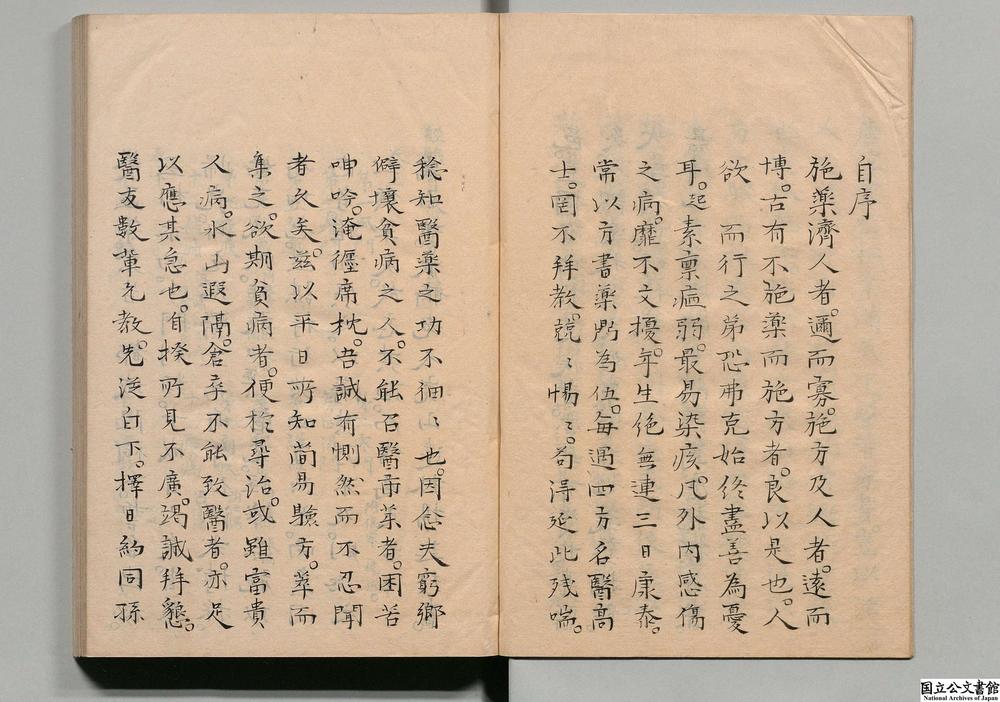 自序
施藥濟人者。邇而寡。施方及人者。遠而
博。古有不施藥而施方者。良以是也。人
欲　而行之第恐弗克始終盡善為憂
耳。起素禀尫弱。最易染疾。凡外内感傷
之病。靡不交擾。年生絶無連三日康泰。
常以方書藥與為伍。每遇四方名醫高
士。罔不拜教。兢〻惕〻。苟淂延此残喘。
稔知醫藥之功不細〻也。因念夫窮鄉
僻壤貧病之人。不能召醫市藥者。困苦
呻吟。淹纏席枕。吾誠有惻然而不忍聞
者久矣。兹以平日所知簡易驗方。萃而
集之。欲期貧病者。便於尋治。或雖富貴
人病。水山遐隔。倉卒不能致醫者。亦足
以應其急也。自揆所見不廣。竭誠拜懇。
醫友數輩允教。先從白下。擇日約同孫
国立公文書館
National Archives of Japan